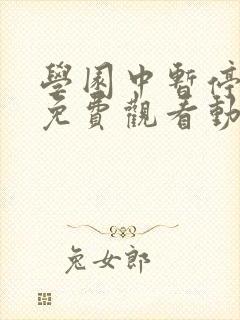 學園中暫停
免費觀看動
兔女郎